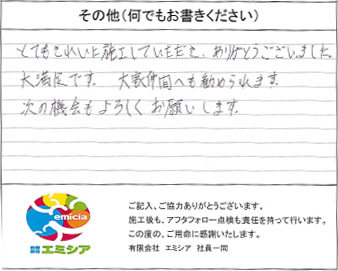 その他(何でもお書きください)
とてもきれいに施工していただき、ありがとうございました。
大満足です。 大家仲間へも勧められます。
次の機会もよろしくお願いします。
emicia
エミシア
ご記入、ご協力ありがとうございます。
施工後も、アフタフォロー点検も責任を持って行います。
この度の、ご用命に感謝いたします。
有限会社 エミシア 社員一同